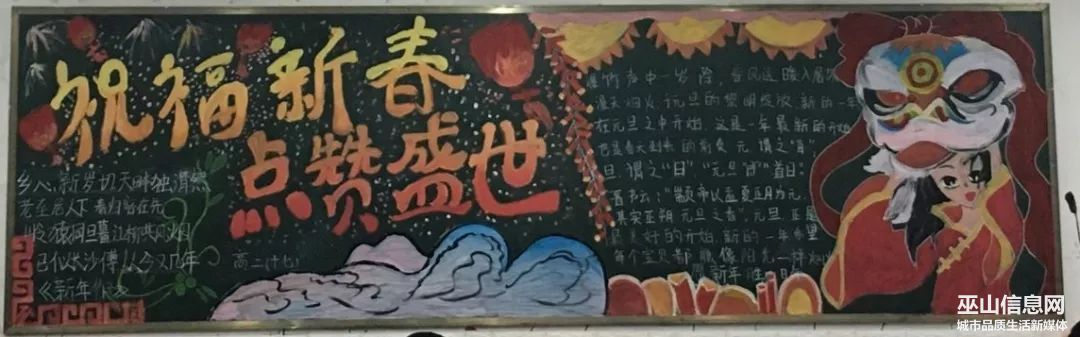 祝福新春
点赞盛世
乡心新岁切天畔独潸然
老至居人下春归客在先
岭猿同旦暮江柳共风烟
已似长沙傅从今又几年
《新年作》
高二(十七)
竹声中一岁除,春风送暖入屠
天烟火,元旦的黎明绽放,新的一年
在元旦之中开始,这是一年最新的开始
元谓之“首”
旦,谓之“日”,“元旦”即“首日”。
晋书云:“颛帝以孟夏正月为元,
其实正朔元旦之春”元旦,正是
最美好的开始,新的一年希望
每个宝贝都能像阳光一样
新年胜
巫山信息网
城市品质生活新媒体